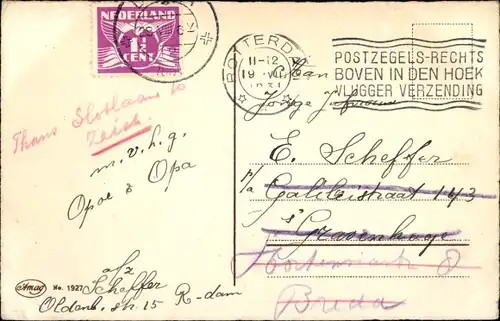 NEDERLAND
1½
CENT
ROTTERDAM
11-12
19 VII
POSTZEGELS-RECHTS
BOVEN IN DEN HOEK
VLUGGER VERZENDING
Aan
Jonge J
E. Scheffer
p/a Galileistraat 143
's Gravenhage
8
Breda
Thans Slotlaan 10
Zeist
m.v.h.g.
Opoe & Opa
a/z
Scheffer
Oldenb. str. 15 R-dam
Amag No. 1927